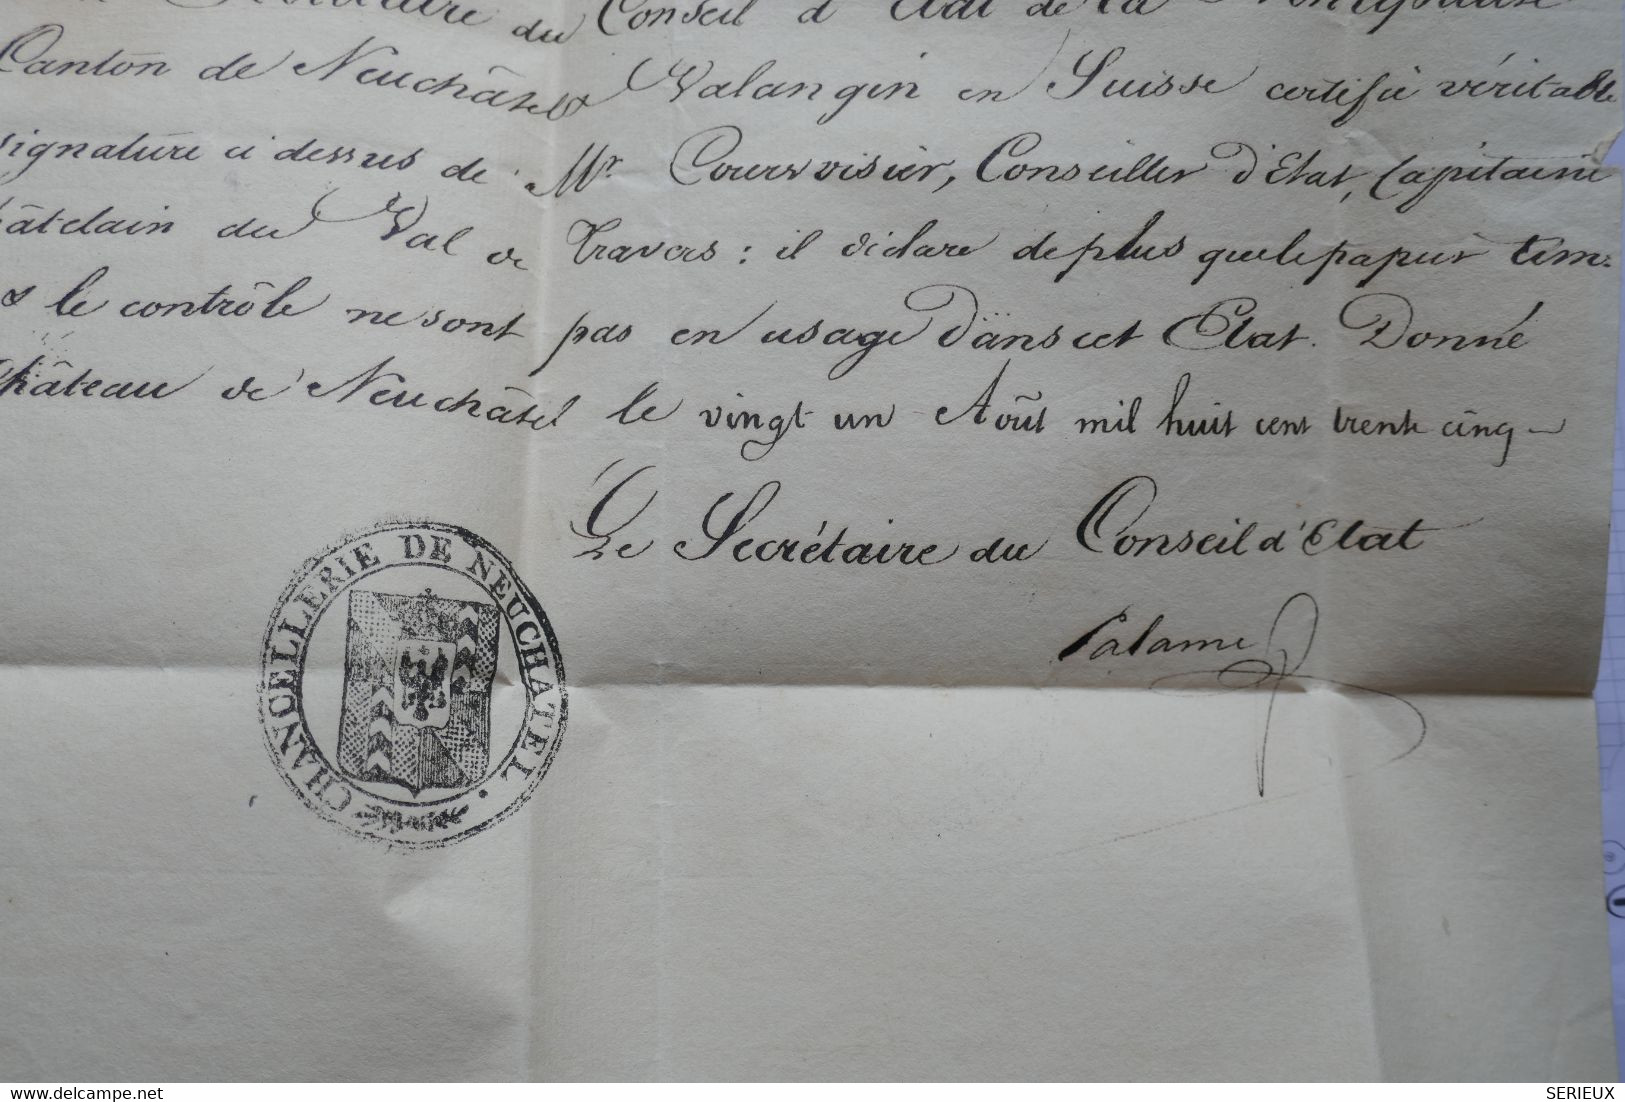 du Conseil d'Etat de la
Canton de Neuchâtel & Valangin en Suisse certifie véritable
signature ci dessus de Mr. Courvoisier, Conseiller d'Etat, Capitaine
âtelain du Val de Travers: il déclare de plus que le papier tim-
& le contrôle ne sont pas en usage dans cet Etat. Donné
Château de Neuchâtel le vingt un Août mil huit cent trente cinq
Le Secrétaire du Conseil d'Etat
Calame
CHANCELLERIE DE NEUCHATEL.
SERIEUX